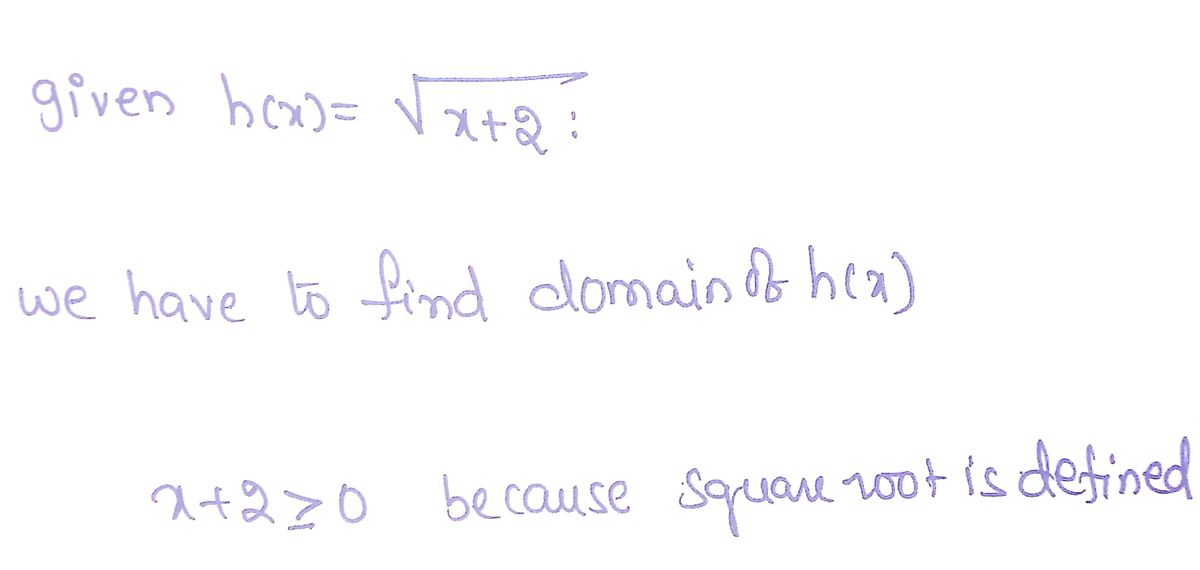 given h(x)= √x+2 :
we have to find domain of h(x)
x+2 ≥ 0 because square root is defined